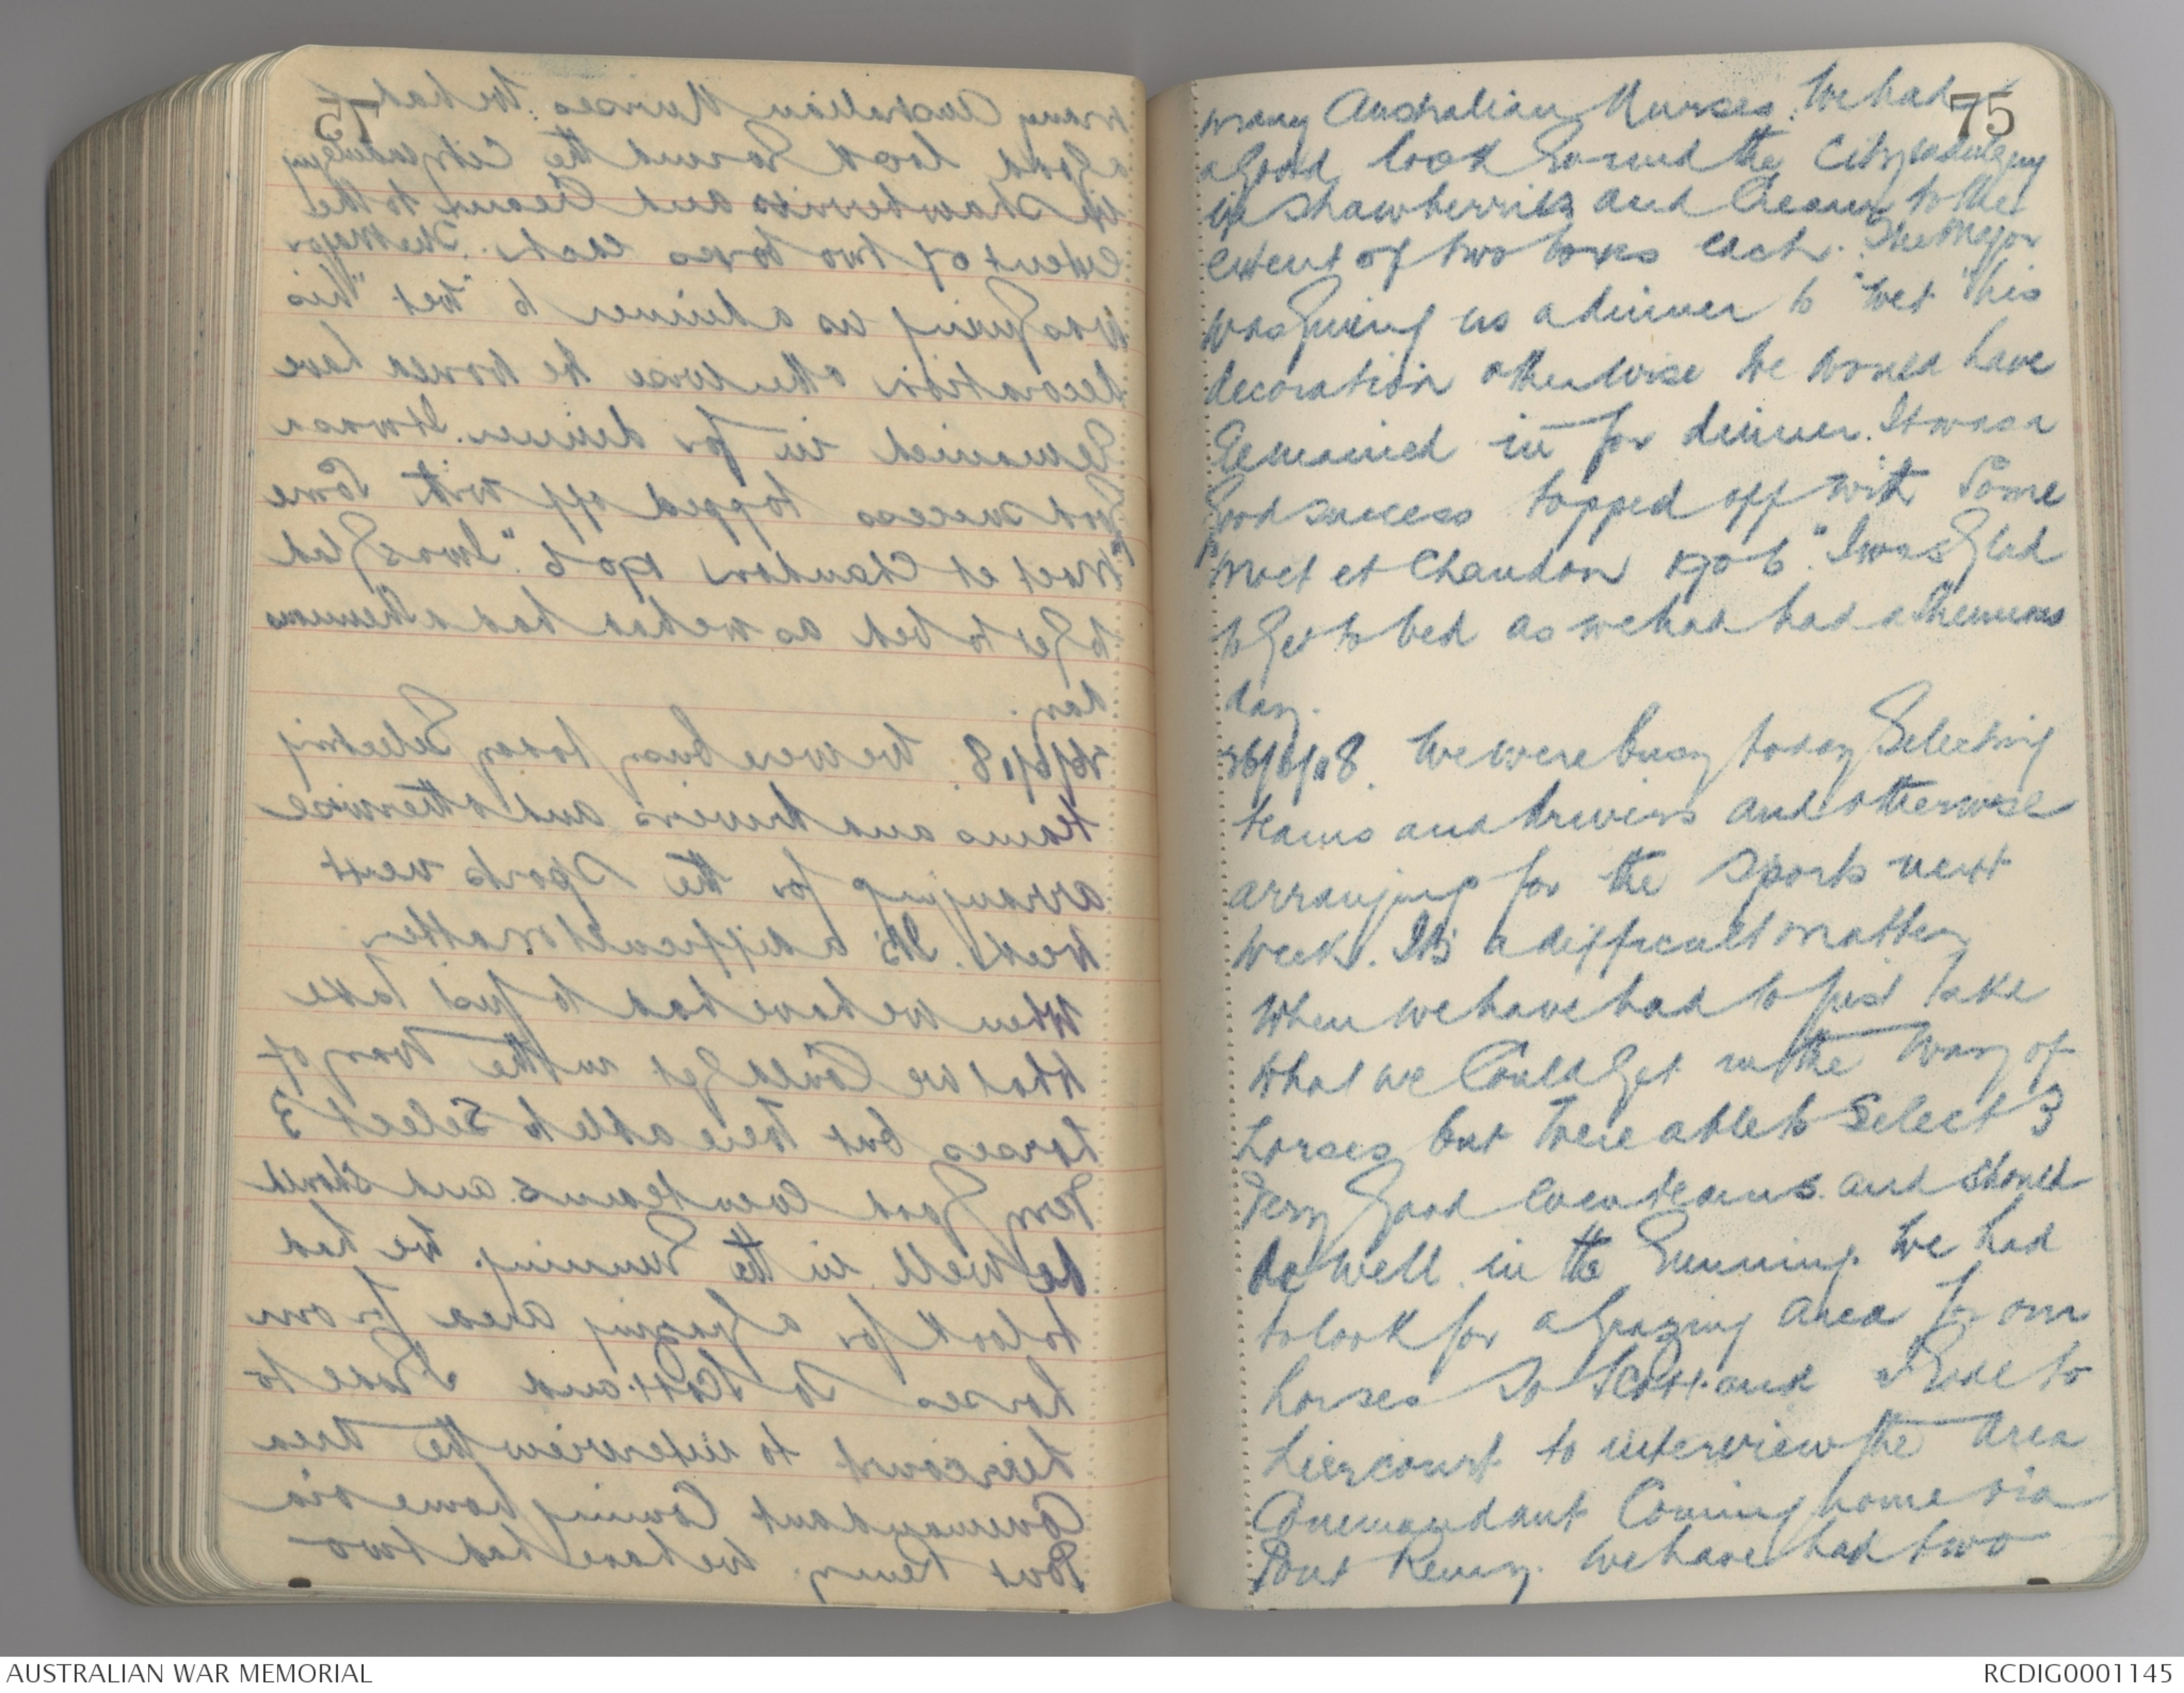 75
many Australian Nurses. We had
a good look round the City indulging
in strawberries and cream to the
extent of two boxes each. The Major
was giving us a dinner to "wet" his
decoration otherwise we would have
remained in for dinner. It was a
good success topped off with some
"Moet et Chandon 1906". I was glad
to get to bed as we had had a strenuous
day.
26/6/18. We were busy today selecting
teams and drivers and otherwise
arranging for the sports next
week. It's a difficult matter
when we have had to just take
what we could get in the way of
horses but were able to select 3
very good even teams and should
do well in the running. We had
to look for a grazing area for our
horses so Scott and I rode to
Liercourt to interview the Area
Commandant coming home via
Pont Remy. We have had two
AUSTRALIAN WAR MEMORIAL
RCDIG0001145